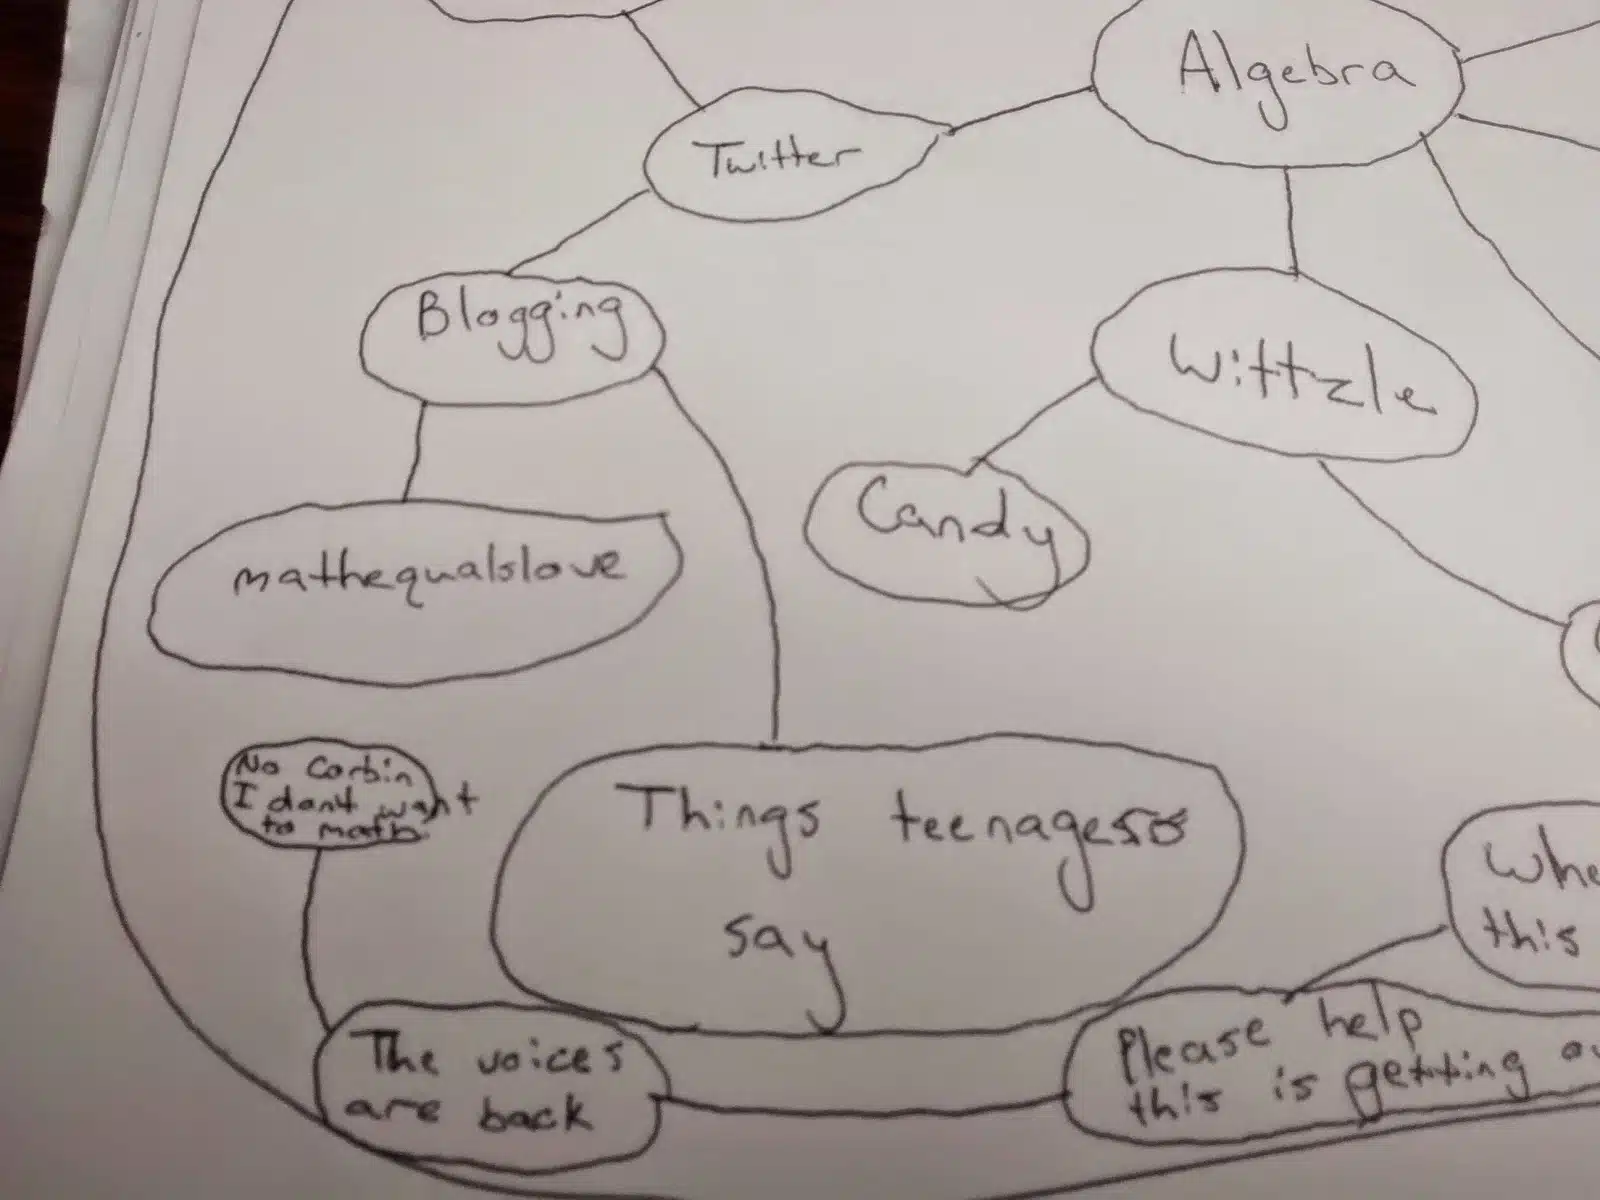 Algebra
Twitter
Blogging
Wittzle
Candy
mathequalslove
No Corbin
I don't want
to math.
Things teenagers
say
Whe
this
The voices
are back
Please help
this is getting